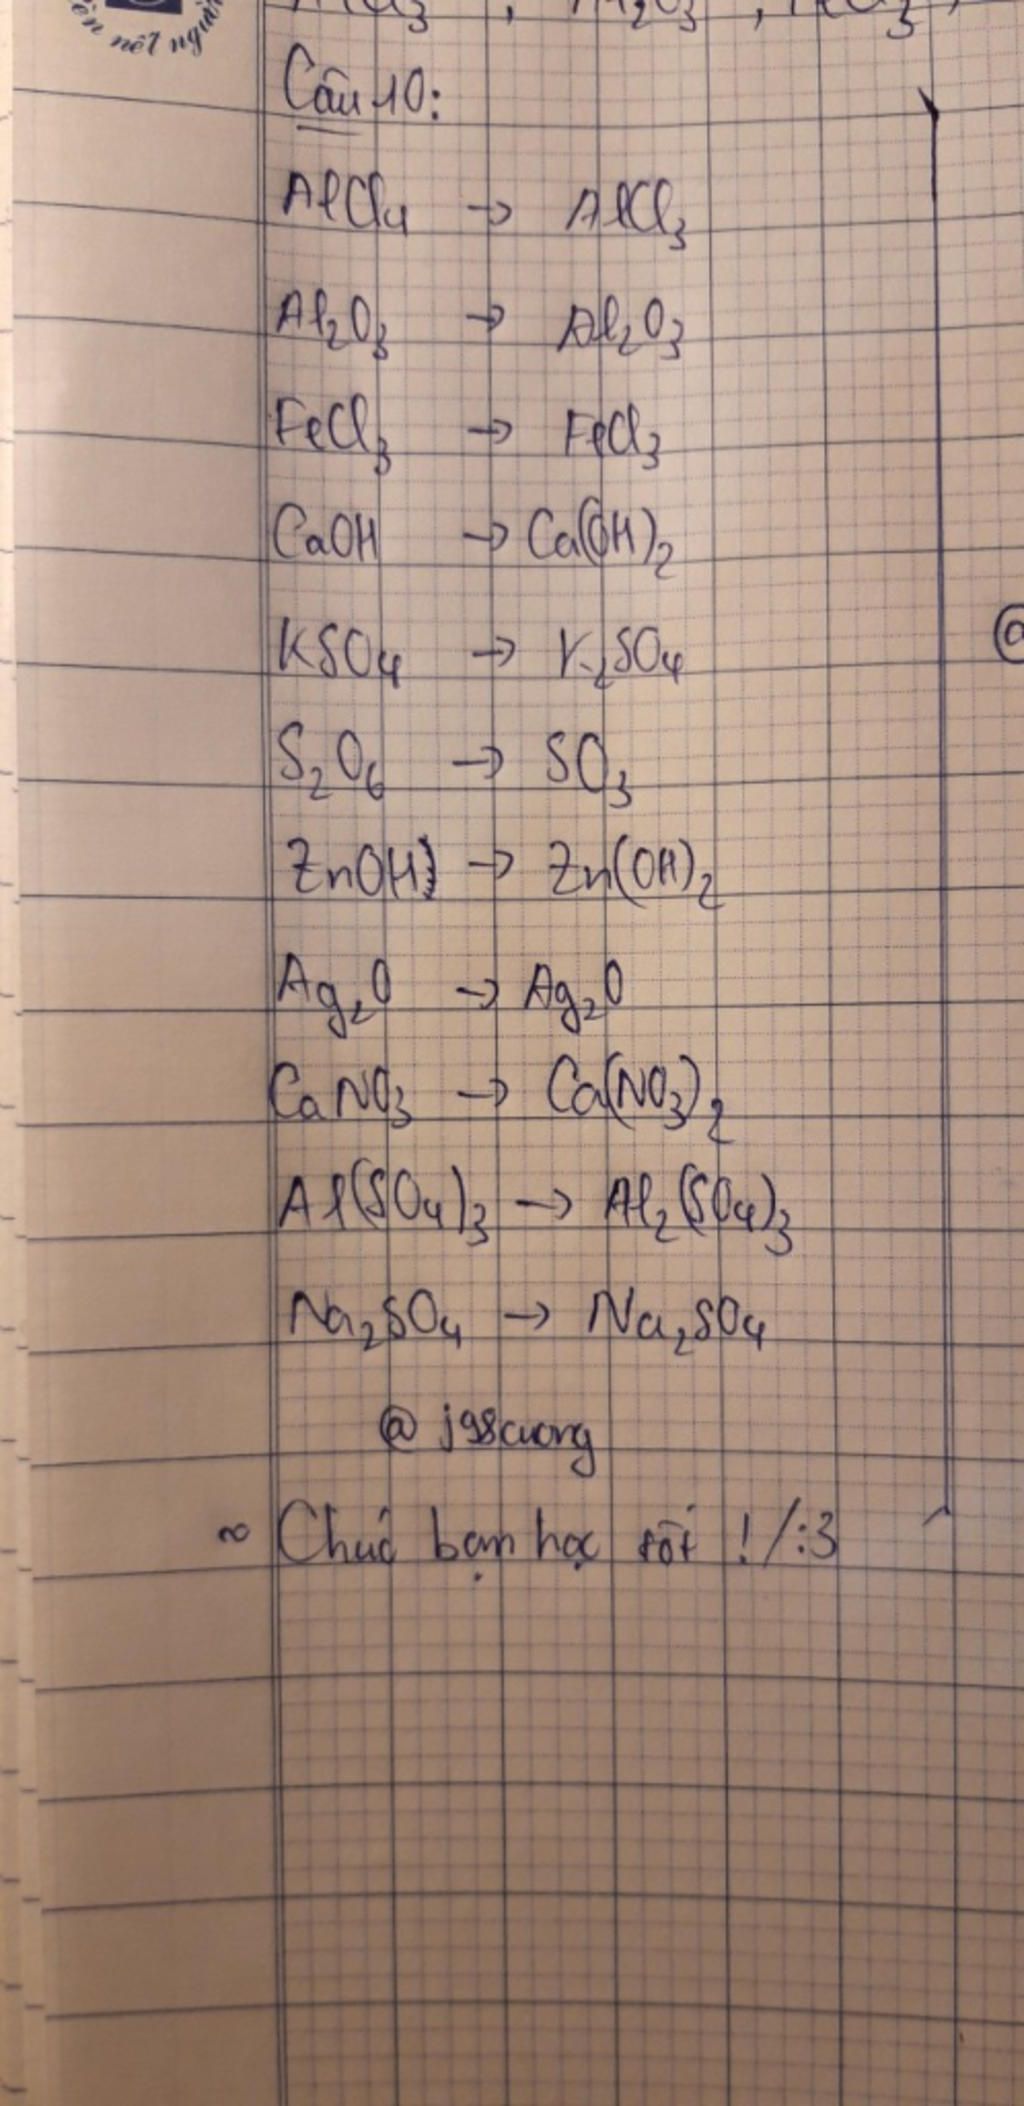 nết người
Câu 10:
AlCl₄ → AlCl₃
Al₂O₃ → Al₂O₃
FeCl₃ → FeCl₃
CaOH → Ca(OH)₂
KSO₄ → K₂SO₄
S₂O₆ → SO₃
ZnOH) → Zn(OH)₂
Ag₂O → Ag₂O
CaNO₃ → Ca(NO₃)₂
Al(SO₄)₃ → Al₂(SO₄)₃
Na₂SO₄ → Na₂SO₄
@ j98cuong
~ Chúc bạn học tốt ! /:3